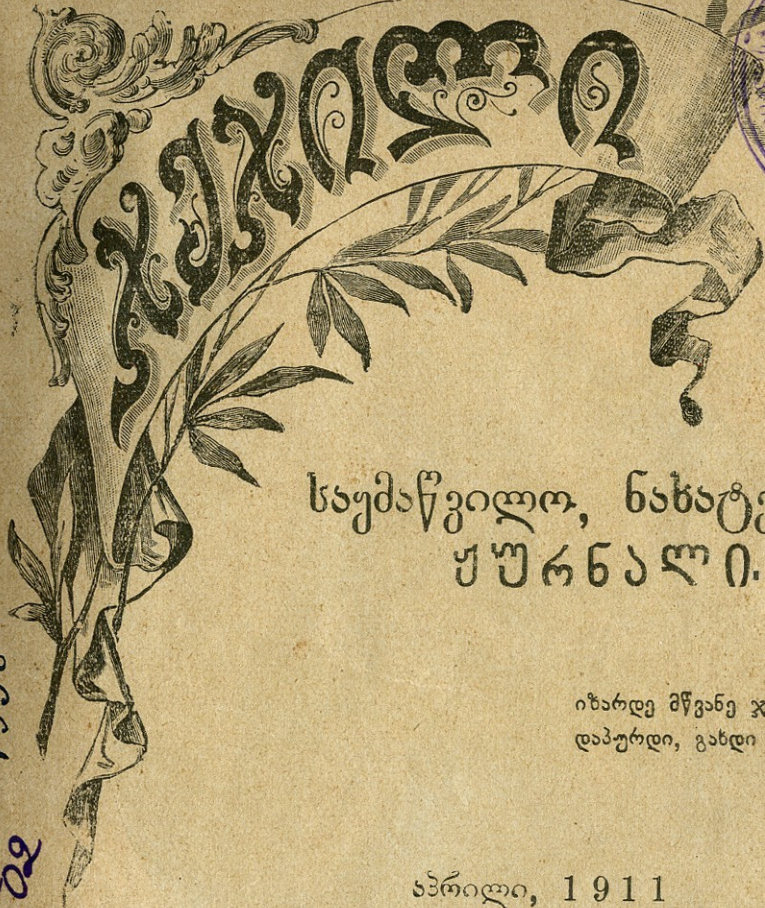 ჯეჯილი
საყმაწვილო, ნახატე
ჟურნალი.
იზარდე მწვანე ჯ
დაპურდი, გახდი
აპრილი, 1911